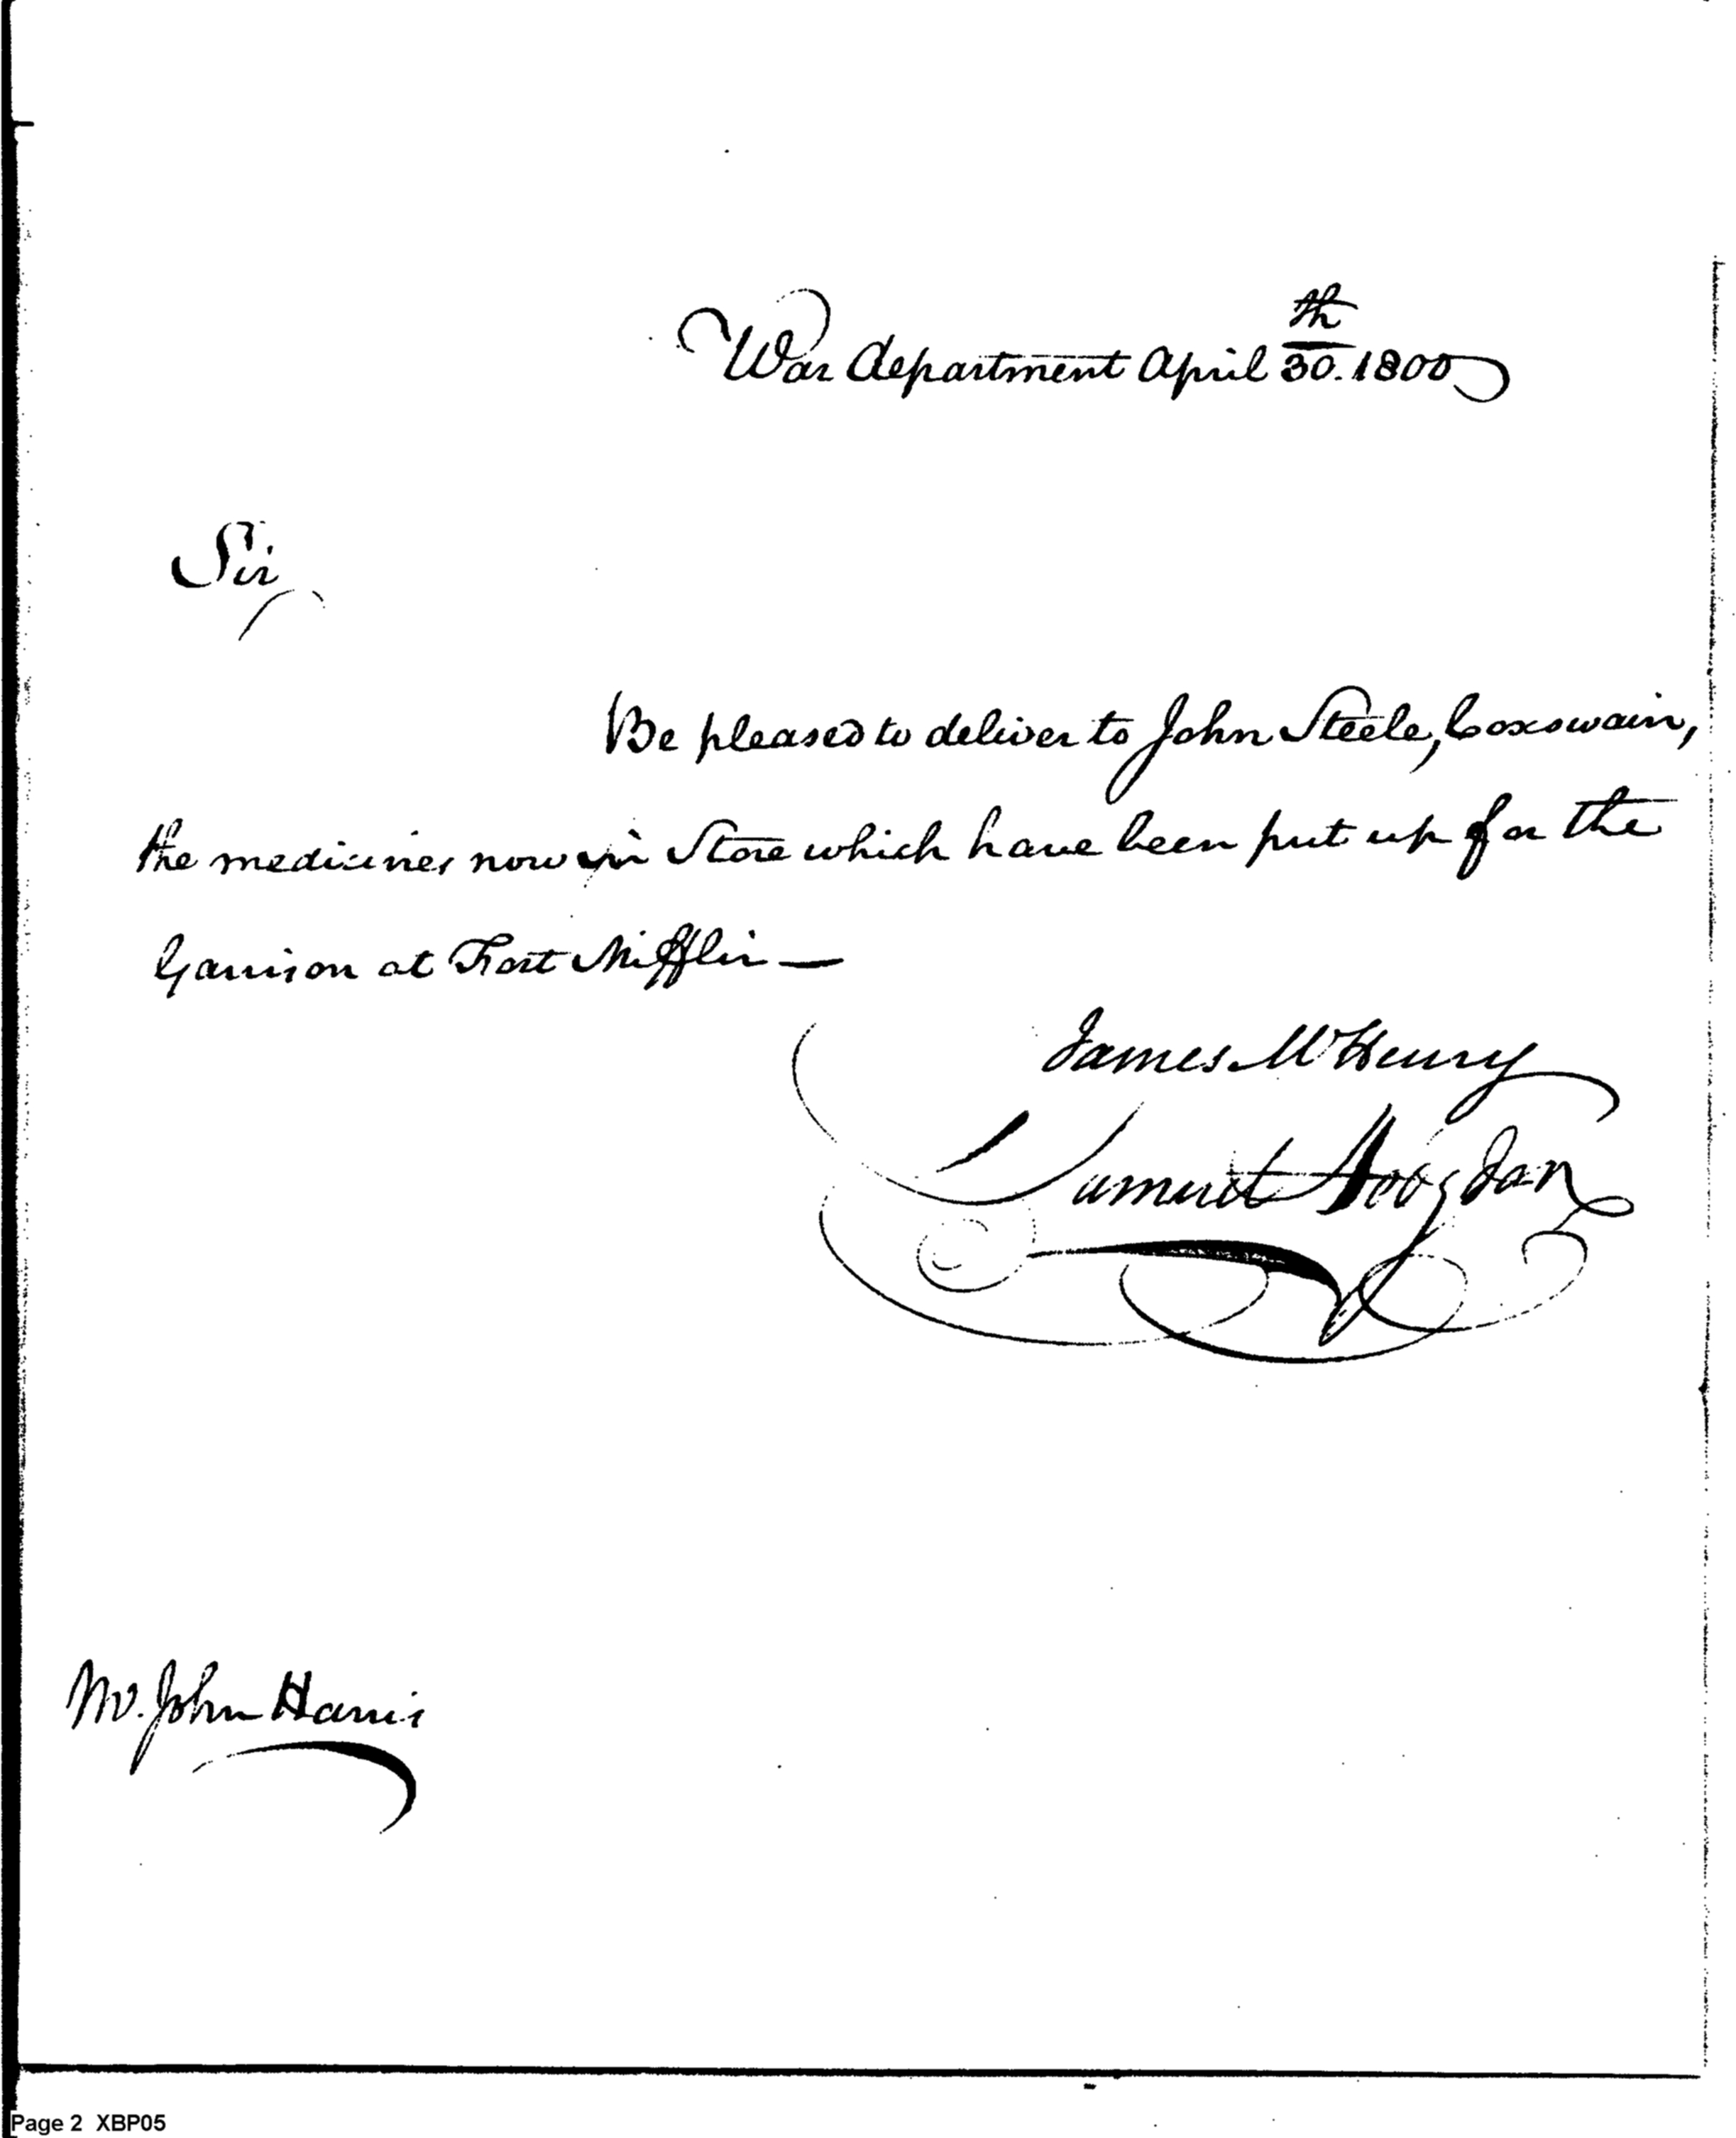 War department April 30th. 1800
Sir
Be pleased to deliver to John Steele, Coxswain,
the medicines now in Store which have been put up for the
Garrison at Fort Mifflin —
James McHenry
Samuel Hodgdon
Mr. John Harris
Page 2 XBP05